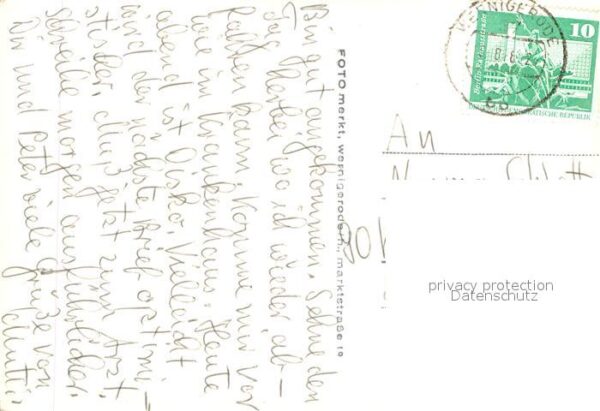 Bin gut angekommen. Sehne den
Tag herbei, wo ich wieder ab-
hauen kann. Komme mir vor
wie im Krankenhaus. Heute
abend ist Disko. Vielleicht
wird der nächste Brief optimi-
stischer. Muß jetzt zum Arzt.
Schreibe morgen ausführlicher.
Dir und Peter viele Grüße von
FOTO merkt, wernigerode/h., marktstraße 19
WERNIGERODE
10
Berlin, Rathausstraße
DEMOKRATISCHE REPUBLIK
An
privacy protection
Datenschutz